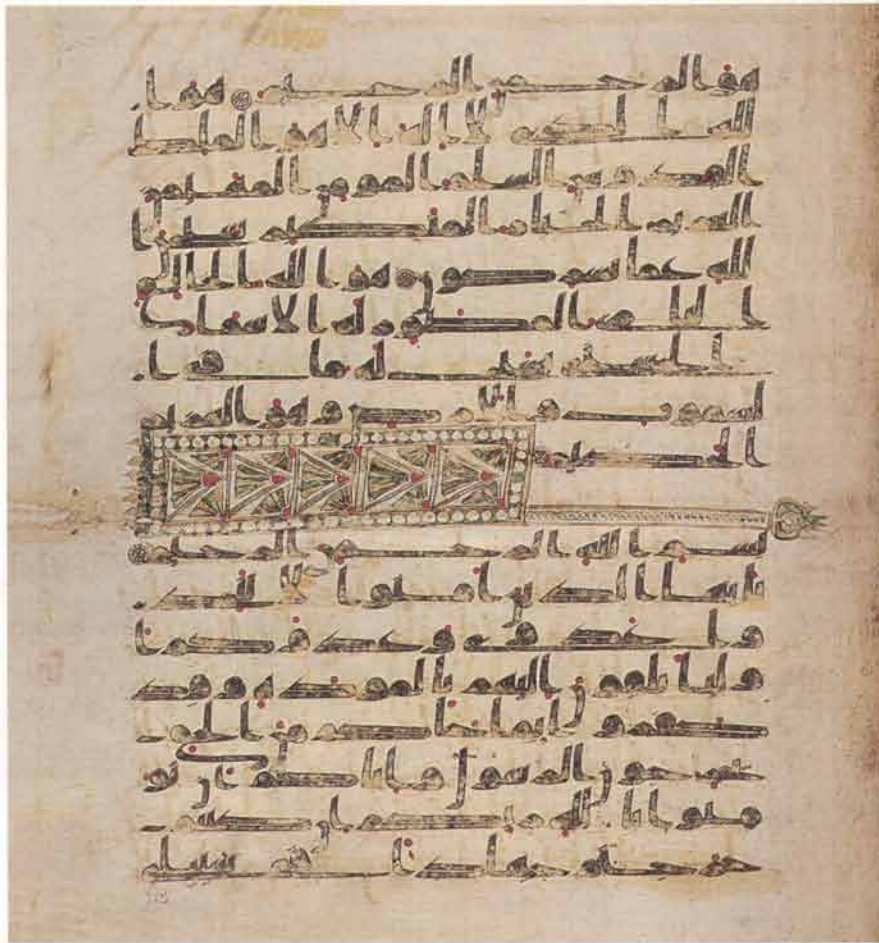 هو الرحمن الرحيم هو ا
لله الذي لا اله الا هو الملك
القدوس السلم المومن المهيمن
العزيز الجبار المتكبر سبحن ا
لله عما يشركون هو الله الخلق
البارئ المصور له الاسما
الحسنى يسبح له ما في ا
لسموت والارض وهو العزيز
الحكيم
بسم الله الرحمن الرحيم
يايها الذين امنوا لا تتخذ
وا عدوي وعدوكم ا
وليا تلقون اليهم بالمودة وقد
كفروا بما جاكم من الحق
يخرجون الرسول واياكم ان تو
منوا بالله ربكم ان كنتم
خرجتم جهدا في سبيلي